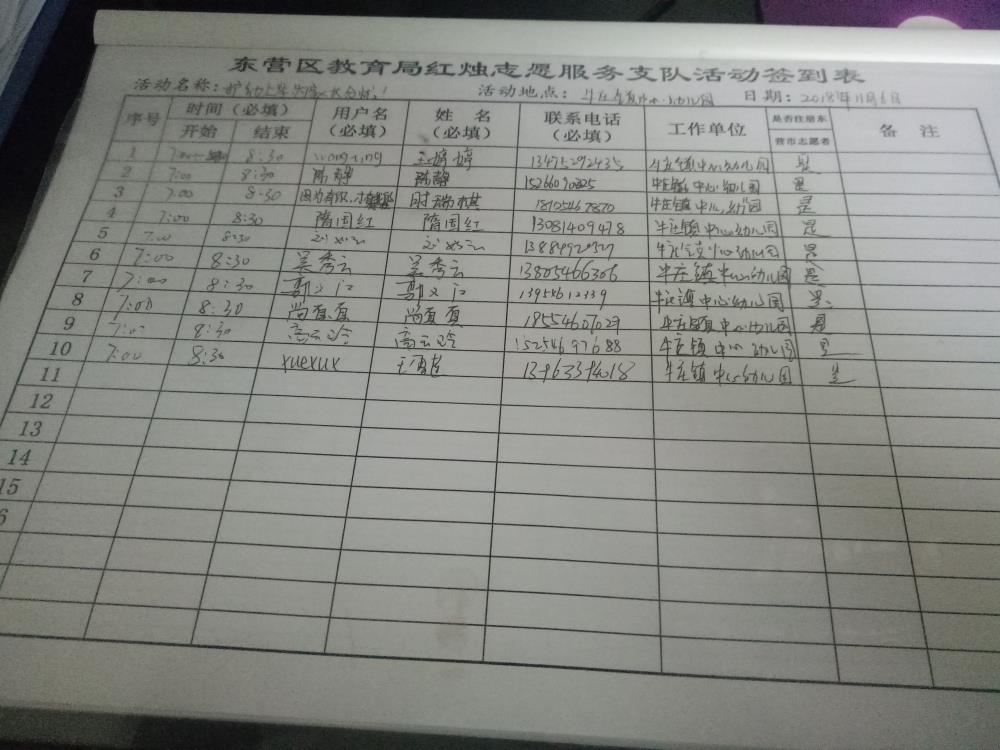 东营区教育局红烛志愿服务支队活动签到表
活动名称： 活动地点：牛庄镇中心幼儿园 日期：2018年11月6日
序号 时间（必填） 用户名（必填） 姓名（必填） 联系电话（必填） 工作单位 是否注册东营市志愿者 备注
开始 结束
1 7:00 8:30 王婷婷 13475292435 牛庄镇中心幼儿园 是
2 7:00 8:30 陈静 陈静 牛庄镇中心幼儿园 是
3 7:00 8:30 时瑞祺 18105467870 牛庄镇中心幼儿园 是
4 7:00 8:30 隋国红 隋国红 13081409478 牛庄镇中心幼儿园 是
5 7:00 8:30 牛庄镇中心幼儿园 是
6 7:00 8:30 吴秀云 吴秀云 13805466306 牛庄镇中心幼儿园 是
7 7:00 8:30 牛庄镇中心幼儿园 是
8 7:00 8:30 尚真真 尚真真 18554607029 牛庄镇中心幼儿园 是
9 7:00 8:30 高云玲 高云玲 15254697688 牛庄镇中心幼儿园 是
10 7:00 8:30 xuexux 牛庄镇中心幼儿园 是
11
12
13
14
15
6